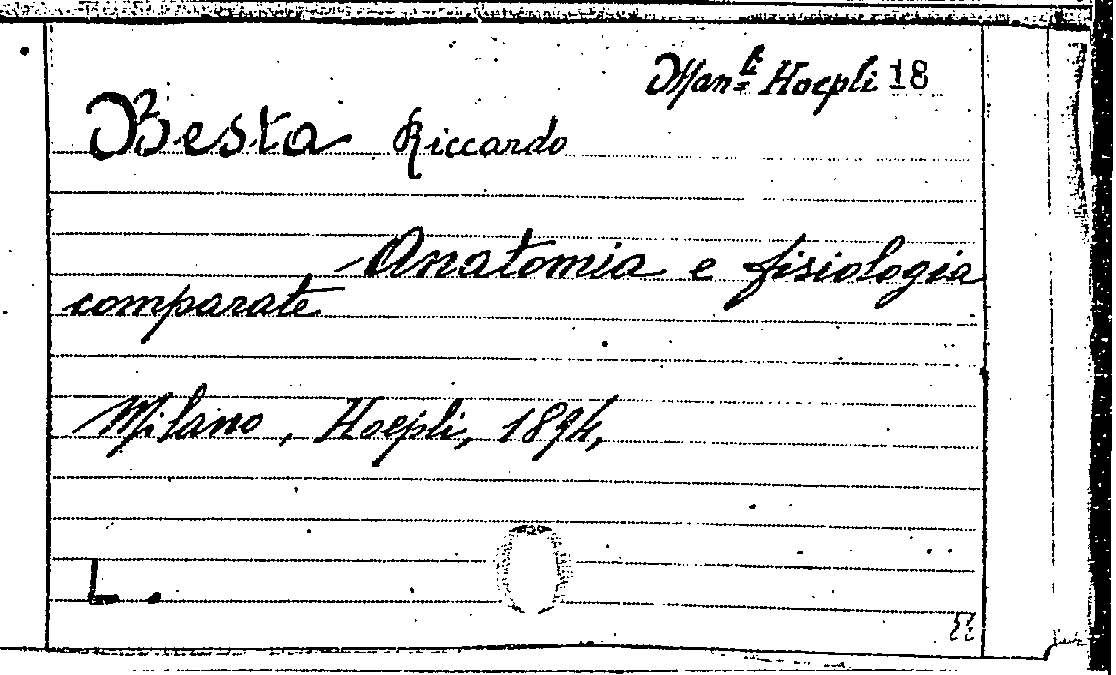 Man.li Hoepli 18
Besta Riccardo
Anatomia e fisiologia
comparate
Milano, Hoepli, 1894,
L.